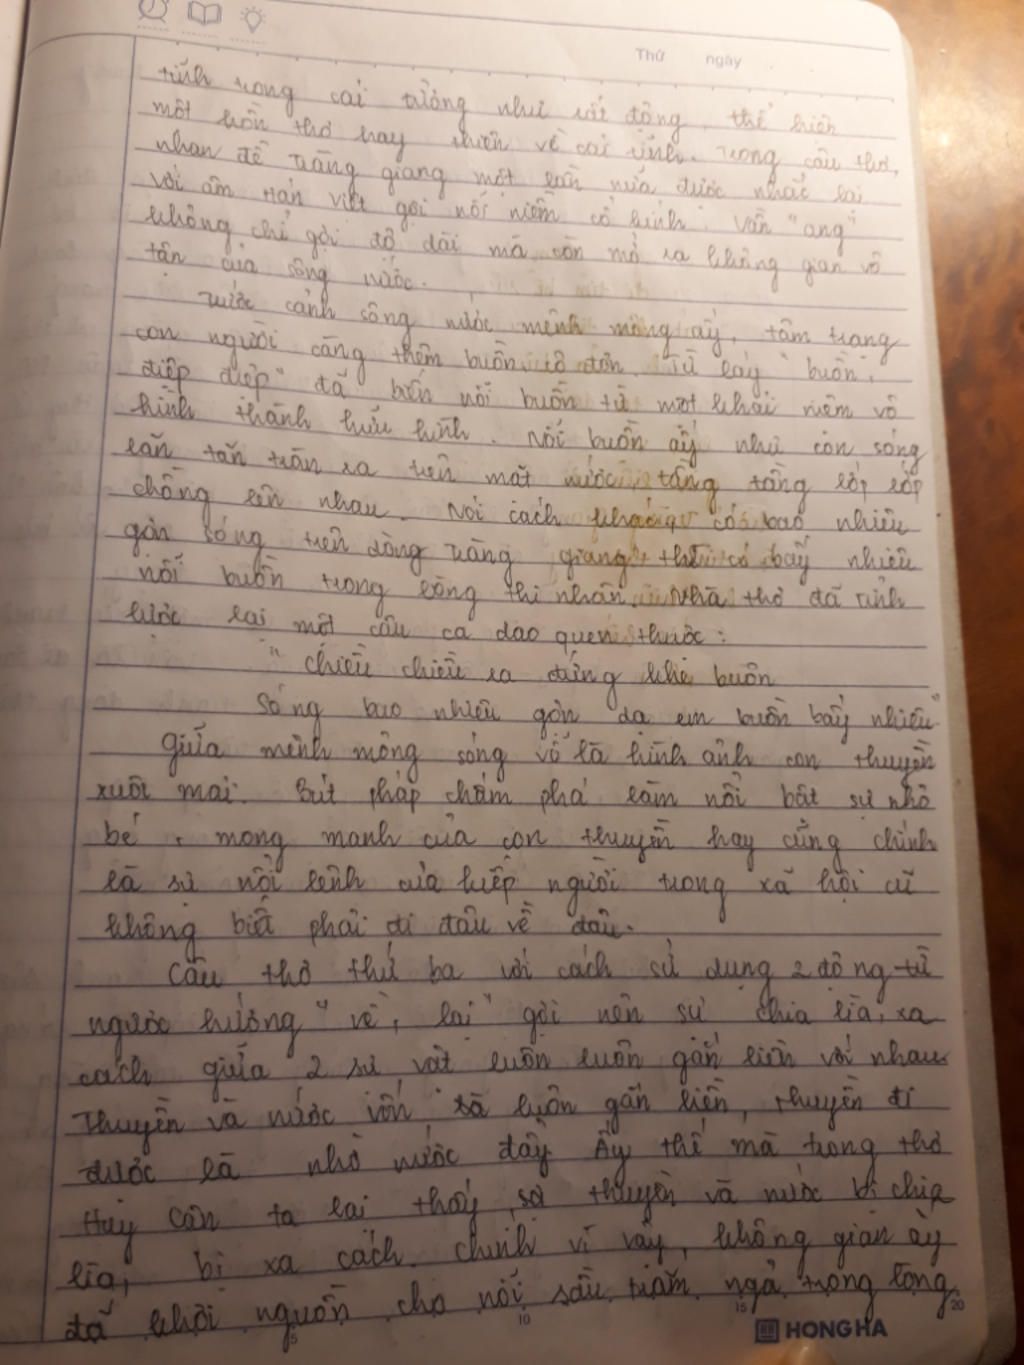 Thứ ngày
tĩnh trong cái tưởng như rất động, thể hiện
một hồn thơ hay thiên về cái tĩnh. Trong câu thơ,
nhan đề tràng giang một lần nữa được nhắc lại
với âm Hán Việt gợi nỗi niềm cổ kính. Vần "ang"
không chỉ gợi độ dài mà còn mở ra không gian vô
tận của sông nước.
Trước cảnh sông nước mênh mông ấy, tâm trạng
con người càng thêm buồn, cô đơn. Từ láy "buồn
điệp điệp" đã biến nỗi buồn từ một khái niệm vô
hình thành hữu hình. Nỗi buồn ấy như con sóng
lăn tăn tràn ra trên mặt nước, tầng tầng lớp lớp
chồng lên nhau. Nói cách khác, có bao nhiêu
gợn sóng trên dòng tràng giang thì có bấy nhiêu
nỗi buồn trong lòng thi nhân. Nhà thơ đã
lược lại một câu ca dao quen thuộc:
" Chiều chiều ra đứng khe buồn
Sóng bao nhiêu gợn dạ em buồn bấy nhiêu"
Giữa mênh mông sóng vỗ là hình ảnh con thuyền
xuôi mái. Bút pháp chấm phá làm nổi bật sự nhỏ
bé, mong manh của con thuyền hay cũng chính
là sự nổi lênh của kiếp người trong xã hội cũ
không biết phải đi đâu về đâu.
Câu thơ thứ ba với cách sử dụng 2 động từ
ngược hướng "về, lại" gợi nên sự chia lìa, xa
cách giữa 2 sự vật luôn luôn gắn liền với nhau.
Thuyền và nước vốn luôn gắn liền, thuyền đi
được là nhờ nước đẩy. Ấy thế mà trong thơ
Huy Cận ta lại thấy sợ thuyền và nước bị chia
lìa, bị xa cách. Chính vì vậy, không gian ấy
đã khơi nguồn cho nỗi sầu trăm ngả trong lòng
5 10 15 20
HONG HA